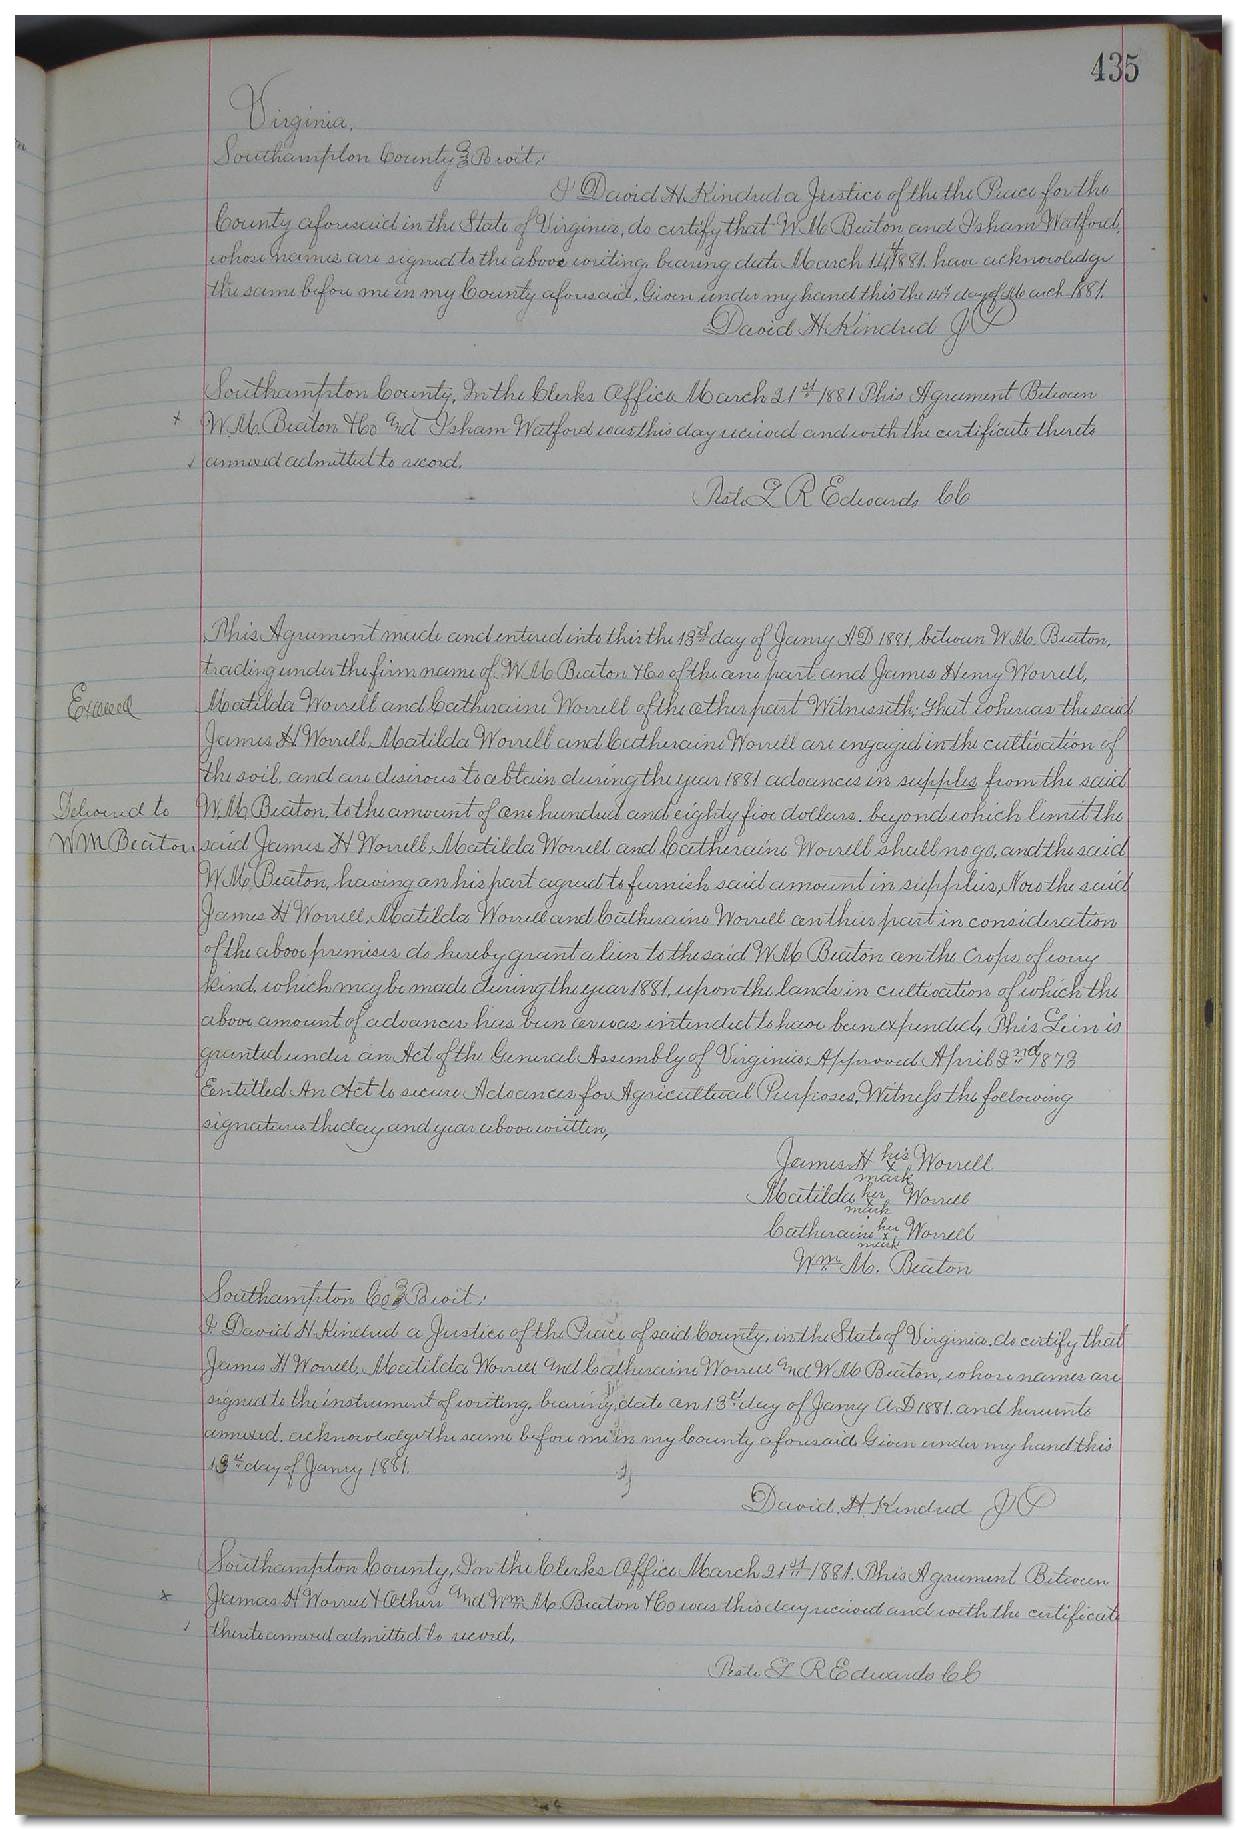 435
Virginia.
Southampton County To wit:
I David H Kindred a Justice of the the Peace for the
County aforesaid in the State of Virginia, do certify that W M Beaton and Isham Watford,
whose names are signed to the above writing, bearing date March 14th 1881. have acknowledge
the same before me in my County aforesaid. Given under my hand this the 14th day of March 1881.
David H Kindred J P
Southampton County, In the Clerks Office March 21st 1881 This Agreement Between
W. M. Beaton & Co and Isham Watford was this day received and with the certificate thereto
annexed admitted to record.
Teste L R Edwards CC
This Agreement made and entered into this the 13th day of Janry A D 1881, between W. M. Beaton,
trading under the firm name of W M Beaton & Co of the one part and James Henry Worrell,
Matilda Worrell and Catheraine Worrell of the other part Witnesseth; That whereas the said
James H Worrell, Matilda Worrell and Catheraine Worrell are engaged in the cultivation of
the soil, and are desirous to obtain during the year 1881 advances in supples from the said
W. M. Beaton, to the amount of one hundred and eighty five dollars. beyond which limit the
said James H Worrell, Matilda Worrell and Catheraine Worrell shall no go, and the said
W M Beaton, having on his part agreed to furnish said amount in supplies, Now the said
James H Worrell, Matilda Worrell and Catheraine Worrell on their part in consideration
of the above premises do hereby grant a lien to the said W M Beaton on the Crops of every
kind, which may be made during the year 1881, upon the lands in cultivation of which the
above amount of advances has been or was intended to have been expended, This Lien is
granted under an Act of the General Assembly of Virginia, Approved April 2nd 1873
Eentitled An Act to secure Advances for Agricultural Purposes. Witness the following
signatures the day and year above written,
Exaed
Delivered to
W M Beaton
James H his x mark Worrell
Matilda her x mark Worrell
Catheraine her x mark Worrell
Wm M. Beaton
Southampton Co To wit:
I David H Kindred a Justice of the Peace of said County, in the State of Virginia. do certify that
James H Worrell, Matilda Worrell and Catheraine Worrell and W M Beaton, whose names are
signed to the instrument of writing, bearing date on 13th day of Janry A D 1881. and hereunto
annexed. acknowledge the same before me in my County aforesaid. Given under my hand this
13th day of Janry 1881.
David. H. Kindred J P
Southampton County, In the Clerks Office March 21st 1881. This Agreement Between
James H Worrell & Others and Wm M. Beaton & Co was this day received and with the certificate
thereto annexed admitted to record,
Teste L R Edwards CC